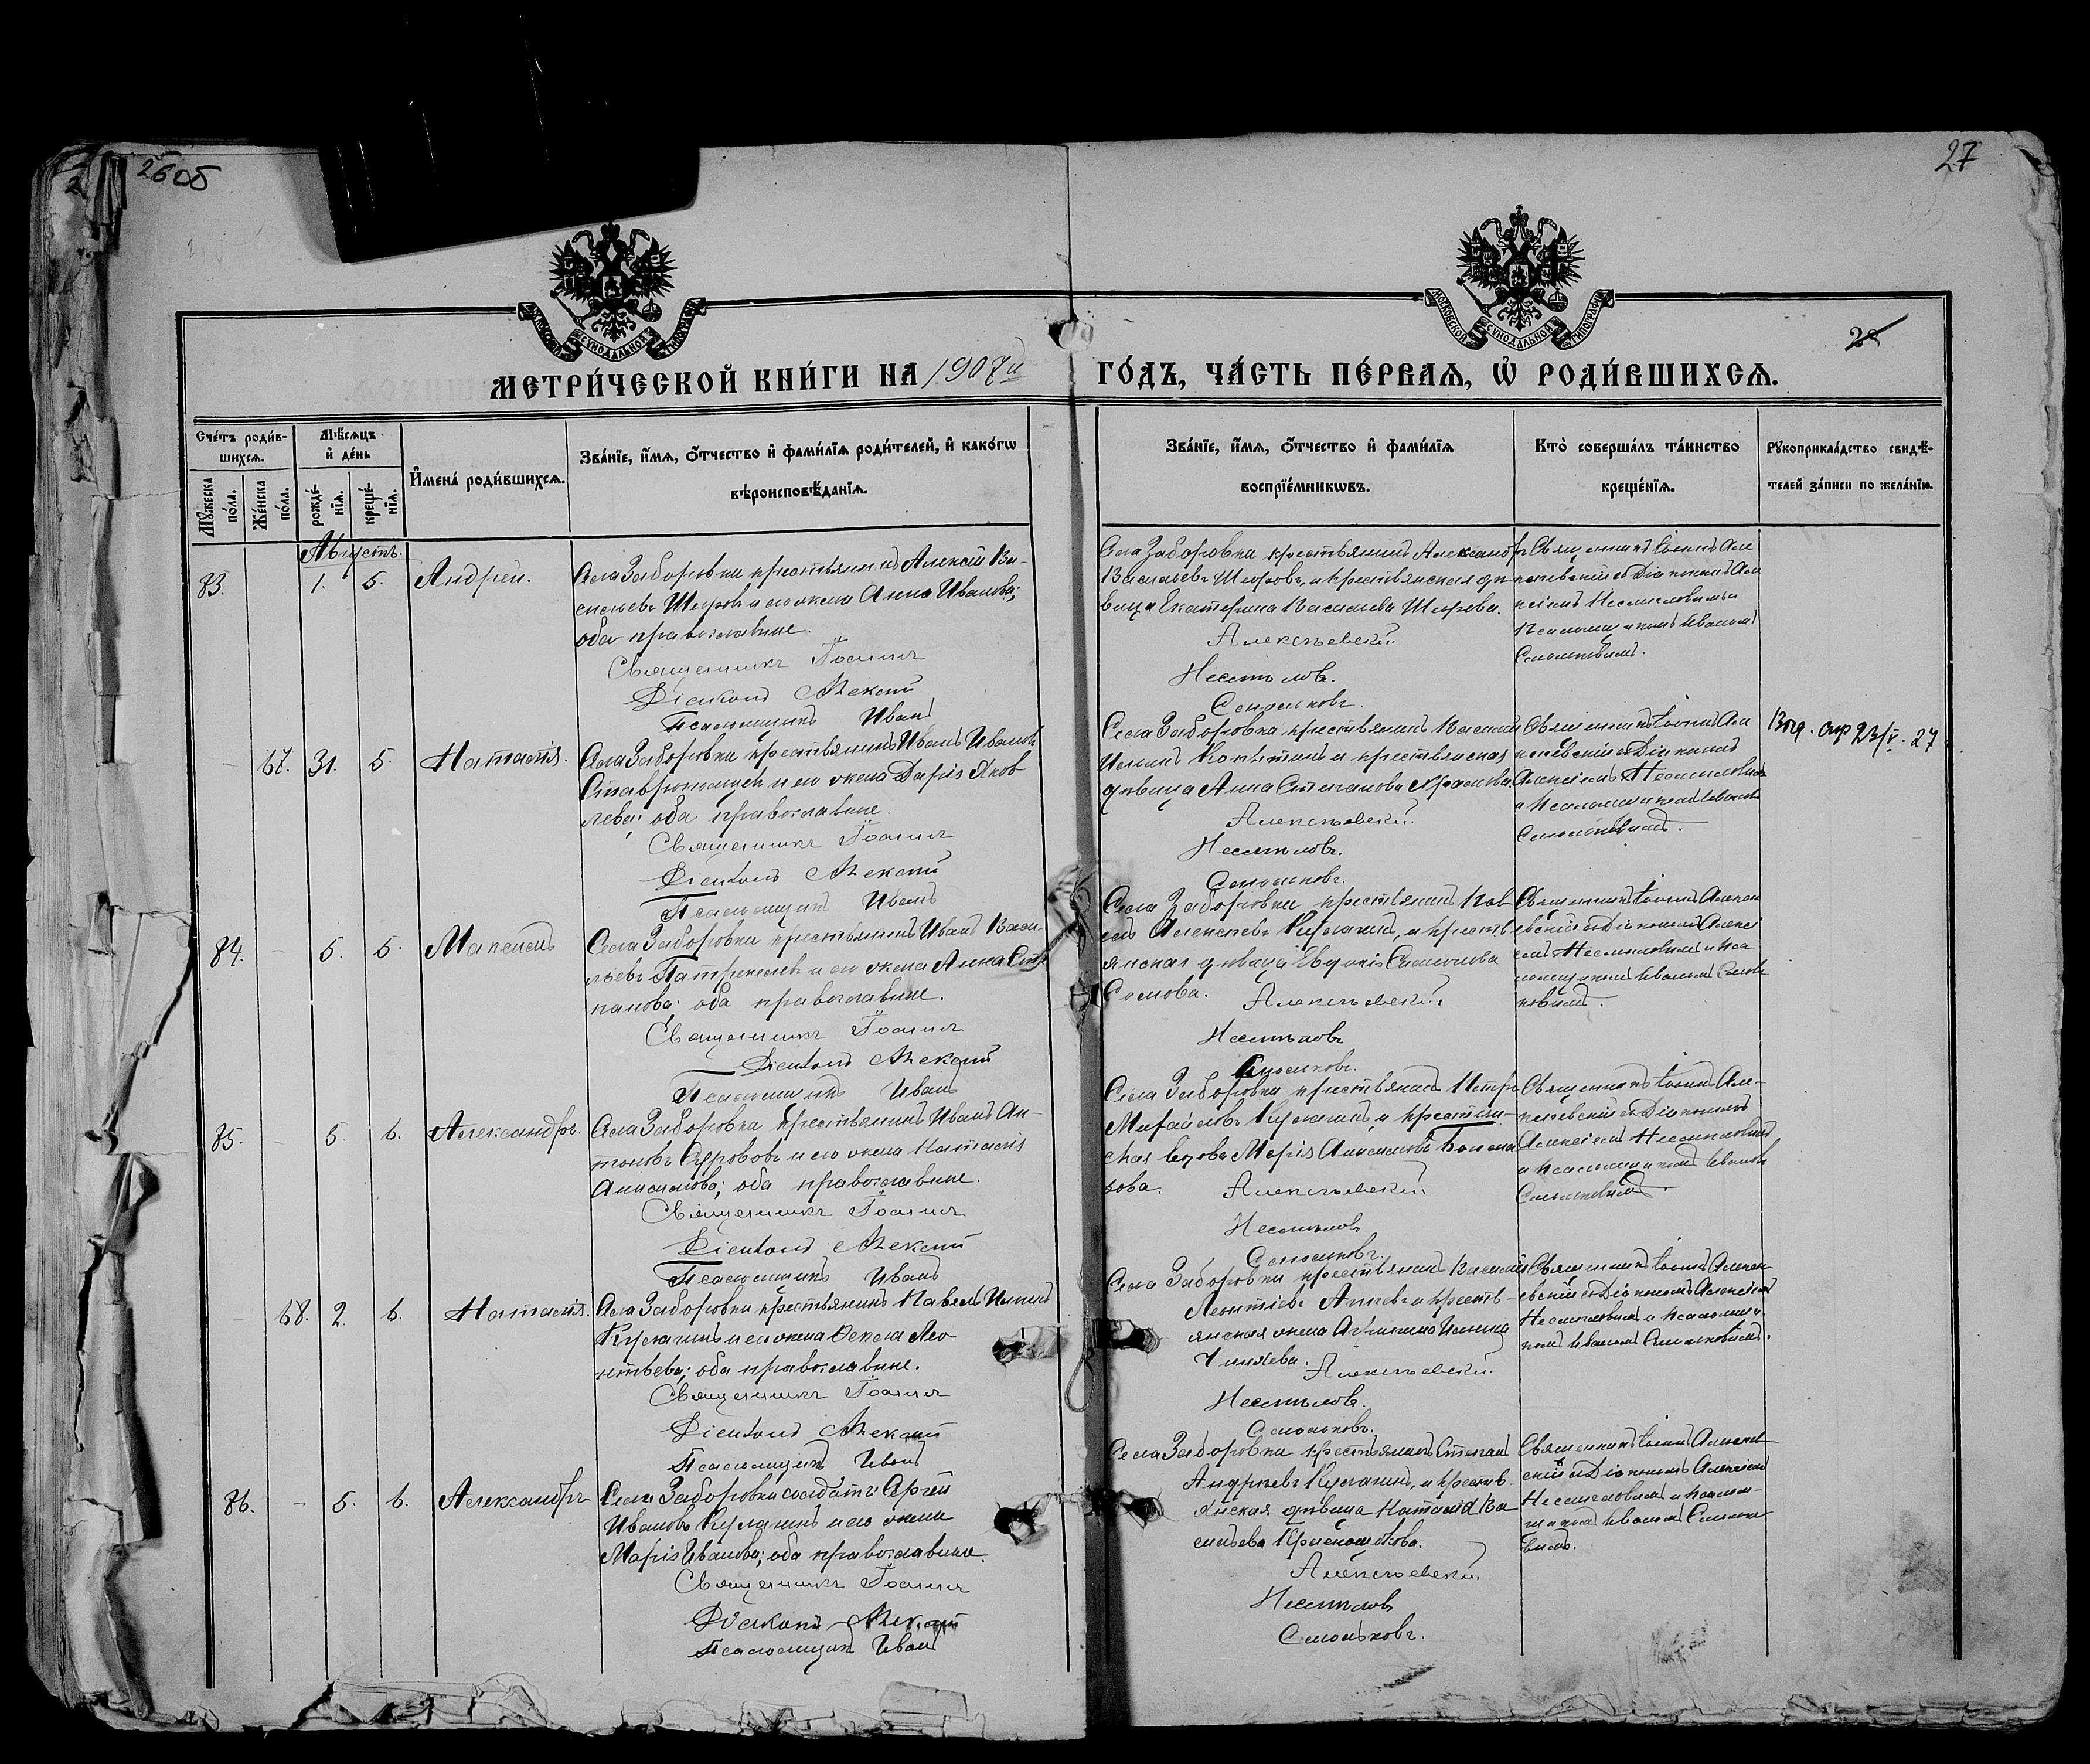 26об
27
МОСКОВСКОЙ СѴНОДАЛЬНОЙ ТИПОГРАФІИ
МОСКОВСКОЙ СѴНОДАЛЬНОЙ ТИПОГРАФІИ
28
МЕТРИ́ЧЕСКОЙ КНИ́ГИ НА 1907й
ГО́ДЪ, ЧА́СТЬ ПЕ́РВАѦ, Ѡ҆ РОДИ́ВШИХСѦ.
Сче́тъ роди́в-
шихсѧ.
Мꙋ́жеска по́ла.
Же́нска по́ла.
Мѣ́сѧцъ
и҆ де́нь
рожде́-
нїѧ.
креще́-
нїѧ.
И҆мена̀ роди́вшихсѧ.
Зва́нїе, и҆́мѧ, ѻ҆́тчество и҆ фами́лїѧ роди́телей, и҆ како́гѡ
вѣроисповѣ́данїѧ.
Зва́нїе, и҆́мѧ, ѻ҆́тчество и҆ фами́лїѧ
воспрїе́мникѡвъ.
Кто̀ соверша́лъ та́инство
креще́нїѧ.
Рꙋкоприкла́дство свидѣ́-
телей за́писи по жела́нїю.
Августъ.
83. 1. 5. Андрей.
Села Заборовки крестьянинъ Алексѣй Ва-
сильевъ и его жена Анна Иванова;
оба православные.
Священникъ Іоаннъ
Діаконъ Алексій
Псаломщикъ Иванъ
Села Заборовки крестьянинъ Александръ
Васильевъ и крестьянская дѣ-
вица Екатерина Васильева
Алексѣевскій.
Несмѣловъ.
Смольковъ.
Священникъ Іоаннъ Але
ксѣевскій съ Діакономъ Але
ксіемъ Несмѣловымъ и
Псаломщикомъ Иваномъ
Смольковымъ.
- 67. 31. 5. Наталія.
Села Заборовки крестьянинъ Иванъ Ивановъ
и его жена Дарія Яков
лева; оба православные.
Священникъ Іоаннъ
Діаконъ Алексій
Псаломщикъ Иванъ
Села Заборовки крестьянинъ Василій
Ильинъ и крестьянская
дѣвица Анна Степанова
Алексѣевскій.
Несмѣловъ.
Смольковъ.
Священникъ Іоаннъ Але
ксѣевскій съ Діакономъ
Алексіемъ Несмѣловымъ
и Псаломщикомъ Иваномъ
Смольковымъ.
Выд. спр 23/V-27
84. - 5. 5. Максимъ
Села Заборовки крестьянинъ Иванъ Васи-
льевъ и его жена Анна Сте
панова; оба православные.
Священникъ Іоаннъ
Діаконъ Алексій
Псаломщикъ Иванъ
Села Заборовки крестьянинъ Пав
елъ Алексѣевъ Кулагинъ, и кресть
янская дѣвица Евдокія
Сомова.
Алексѣевскій.
Несмѣловъ
Смольковъ.
Священникъ Іоаннъ Алексѣ
евскій съ Діакономъ Алексі
емъ Несмѣловымъ и Пса
ломщикомъ Иваномъ Смоль
ковымъ.
85. - 5. 6. Александръ.
Села Заборовки крестьянинъ Иванъ Ан-
тоновъ и его жена Наталія
Анисимова; оба православные.
Священникъ Іоаннъ
Діаконъ Алексій
Псаломщикъ Иванъ
Села Заборовки крестьянинъ Петръ
Михайловъ Кулагинъ и крестьян-
ская вдова Марія
Алексѣевскій.
Несмѣловъ
Смольковъ.
Священникъ Іоаннъ Але-
ксѣевскій съ Діакономъ
Алексіемъ Несмѣловымъ
и Псаломщикомъ Иваномъ
Смольковымъ.
- 68. 2. 6. Наталія.
Села Заборовки крестьянинъ Павелъ Ильинъ
Кулагинъ и его жена Ѳекла Лео
нтьева; оба православные.
Священникъ Іоаннъ
Діаконъ Алексій
Псаломщикъ Иванъ
Села Заборовки крестьянинъ Василій
Леонтіевъ и кресть-
янская жена Агрипина Ильина
Алексѣевскій.
Несмѣловъ.
Смольковъ.
Священникъ Іоаннъ Алексѣ
евскій съ Діакономъ Алексіемъ
Несмѣловымъ и Псаломщи
комъ Иваномъ Смольковымъ.
86. - 5. 6. Александръ
Села Заборовки солдатъ Сергѣй
Ивановъ Кулагинъ и его жена
Марія Иванова; оба православные.
Священникъ Іоаннъ
Діаконъ Алексій
Псаломщикъ Иванъ
Села Заборовки крестьянинъ Степанъ
Андреевъ Кулагинъ, и кресть-
янская дѣвица Наталія Ва
сильева
Алексѣевскій.
Несмѣловъ
Смольковъ.
Священникъ Іоаннъ Алексѣев
скій съ Діакономъ Алексіемъ
Несмѣловымъ и Псалом-
щикомъ Иваномъ Смолько
вымъ.